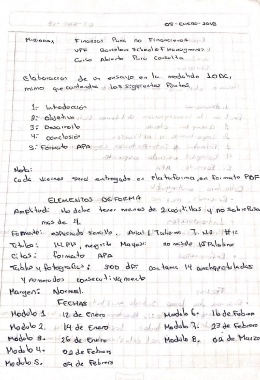 08-Enero-2018
Finanzas Para no Financieros
UPF Barcelona School of Management
Curso Abierto Para Consulta
Elaboración de un ensayo en la modalidad IDDC,
mismo que contendra los siguientes Puntos
1.- Introducción
2.- Objetivo
3.- Desarrollo
4.- Conclusión
5.- Formato APA
Nota:
Cada viernes sera entregado en plataforma, en Formato PDF
ELEMENTOS DE FORMA
Amplitud: No debe tener menos de 2 cuartillas y no
mas de 4.
Formato: espaciado sencillo. Arial
Titulos: 14 Pts, negrita
Citas: formato APA
300 dpi
y numerados consecutivamente
Margen: Normal.
FECHAS
Modulo 1 12 de Enero
Modulo 2. 19 de Enero
Modulo 3. 26 de Enero
Modulo 4. 02 de Febrero
Modulo 5. 09 de Febrero
Modulo 6. 16 de Febrero
Modulo 7. 23 de Febrero
Modulo 8. 02 de Marzo